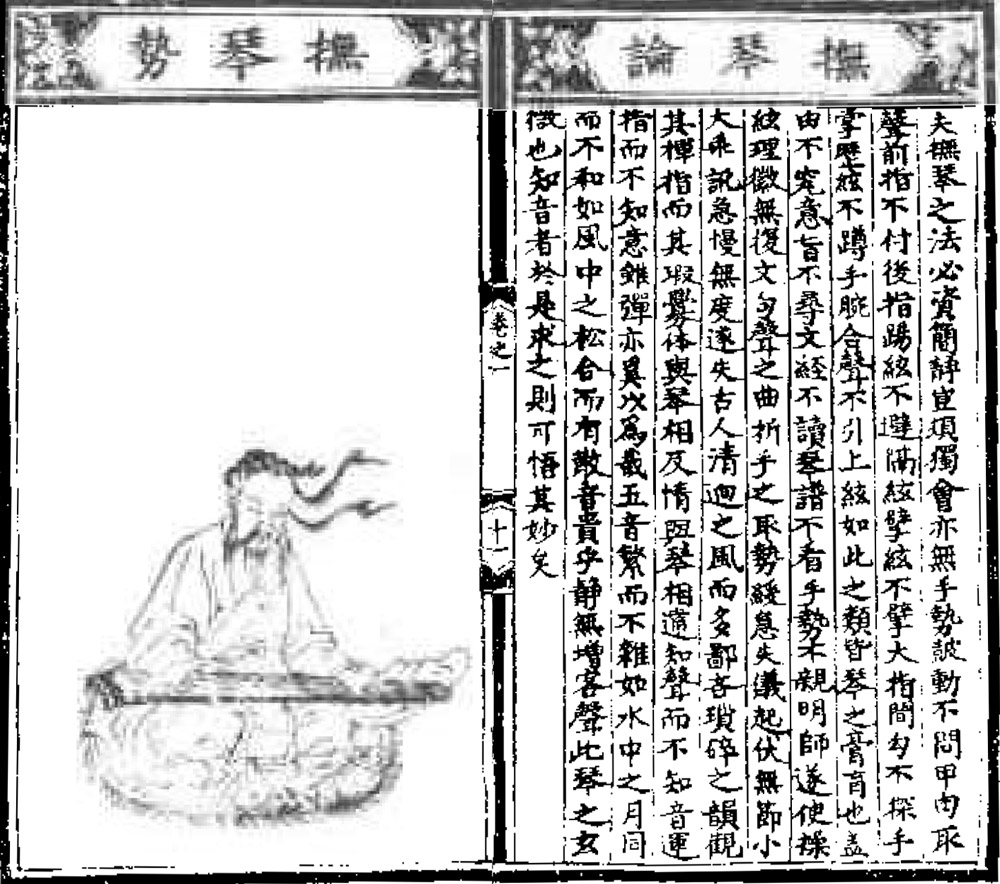 撫琴論
夫撫琴之法必資簡靜宜須獨會亦無手勢皷動不問甲肉取
聲前指不付後指踢絃不避隔絃擘絃不擘大指間勾不探手
掌歷絃不蹲手腕合聲不引上絃如此之類皆琴之膏肓也盖
由不究意旨不尋文經不讀琴譜不看手勢不親明師遂使操
絃理徽無復文句聲之曲折手之取勢緩急失儀起伏無節小
大乖訊急慢無度遂失古人清逈之風而多鄙吝瑣碎之韻觀
其揮指而其瑕釁体與琴相反情與琴相違知聲而不知音運
指而不知意雖彈亦奚以為哉五音繁而不雜如水中之月同
而不和如風中之松合而有散音貴乎靜無增客聲此琴之玄
微也知音者於是求之則可悟其妙矣
卷之一
十一
撫琴勢